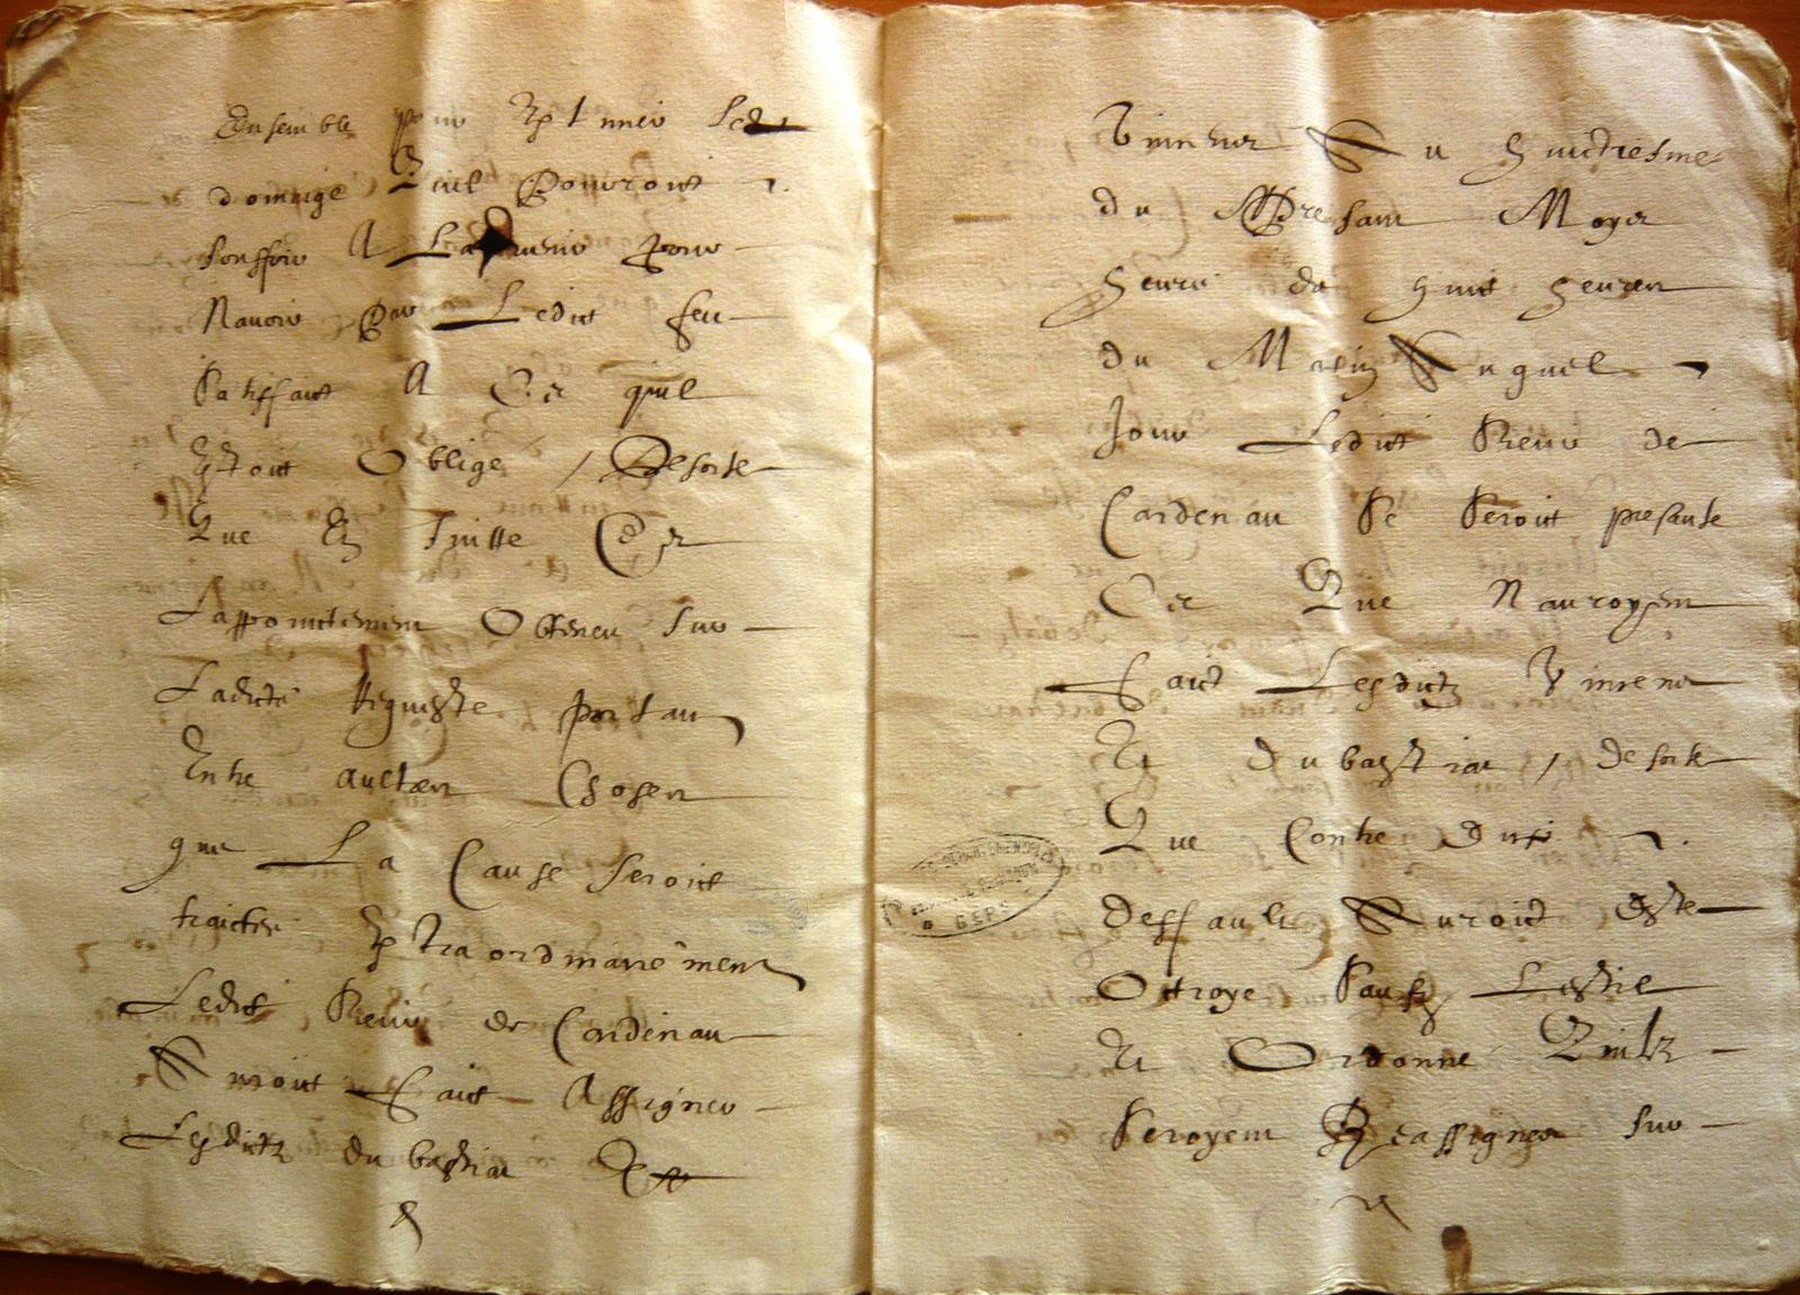 Ensemble pour le
domaige Quil Pouvroict
souffrir A Ladvenir pour
Navoir Par Ledict feu
Satisffaict A Ce quil
Estoit Oblige / De sorte
Que En Suitte De
Lappointement Obtenu sur
Ladicte Requeste portan
Entre aultres Choses
que La Cause seroict
traictee Extraordinairement
Ledict Sieur de Cardenau
Auroict faict Assigner
Lesdictz du bastiar Et
Au huictiesme
du Presant Moys
heure de huict heures
du Matin Auquel
Jour Ledict Sieur de
Cardenau Se Seroict presante
Ce Que Nauroyent
faict Lesdictz
Et du bastiar / de sorte
Que Contre
deffault Auroict Este
Octroye Saufz
Et Ordonne Quilz
Seroyent Reassignes sur
GERS